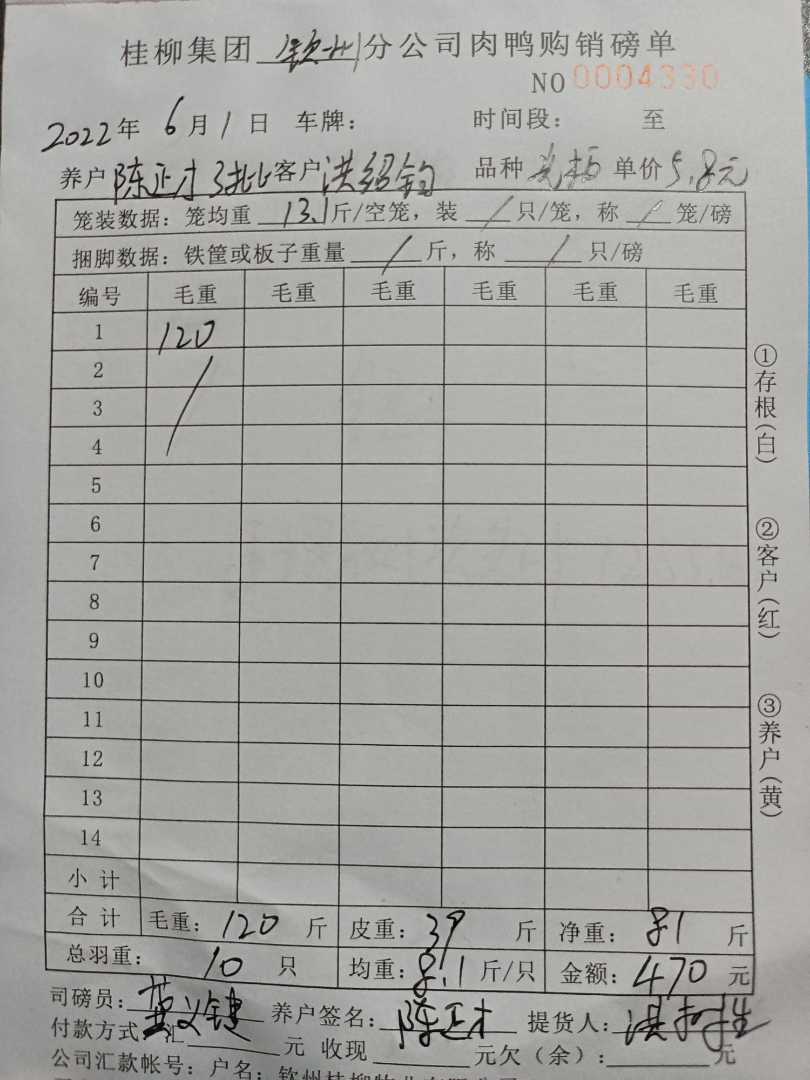 桂柳集团 钦州 分公司肉鸭购销磅单
NO 0004330
2022年 6月1日 车牌： 时间段： 至
养户 陈正才3批 客户 洪绍钧 品种 单价 5.8元
笼装数据：笼均重 13.1斤/空笼，装 / 只/笼，称 / 笼/磅
捆脚数据：铁筐或板子重量 / 斤，称 / 只/磅
编号 毛重 毛重 毛重 毛重 毛重 毛重
1 120
2 /
3
4
5
6
7
8
9
10
11
12
13
14
小计
合计 毛重：120 斤 皮重：39 斤 净重：81 斤
总羽重： 10 只 均重：8.1 斤/只 金额：470 元
司磅员： 养户签名：陈正才 提货人：
付款方式 汇 元 收现 元欠（余）： 元
公司汇款帐号：户名：钦州桂柳牧业有限公司
①存根（白）
②客户（红）
③养户（黄）